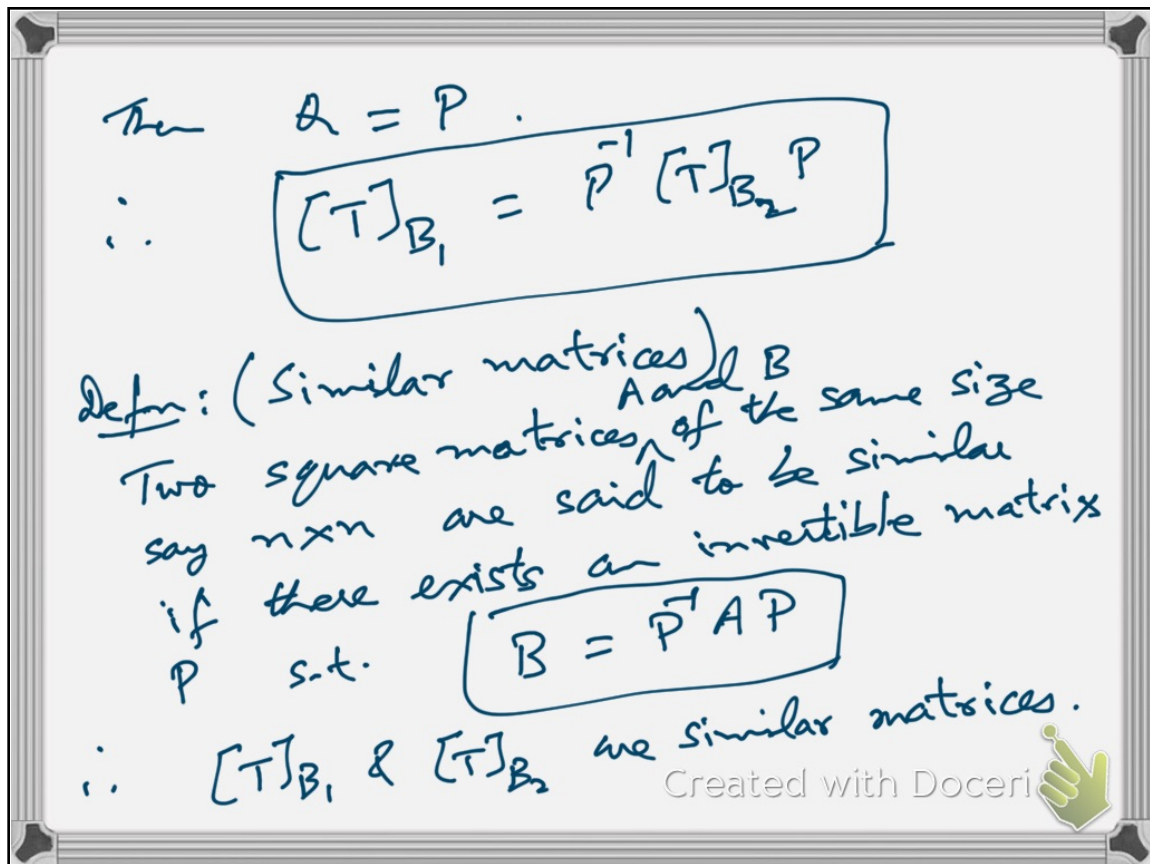 Then Q = P .
∴ [T]_{B_1} = P^{-1} [T]_{B_2} P
Defn: (Similar matrices)
Two square matrices ^ A and B of the same size
say n×n are said to be similar
if there exists an invertible matrix
P s.t. B = P^{-1} A P
∴ [T]_{B_1} & [T]_{B_2} are similar matrices.
Created with Doceri